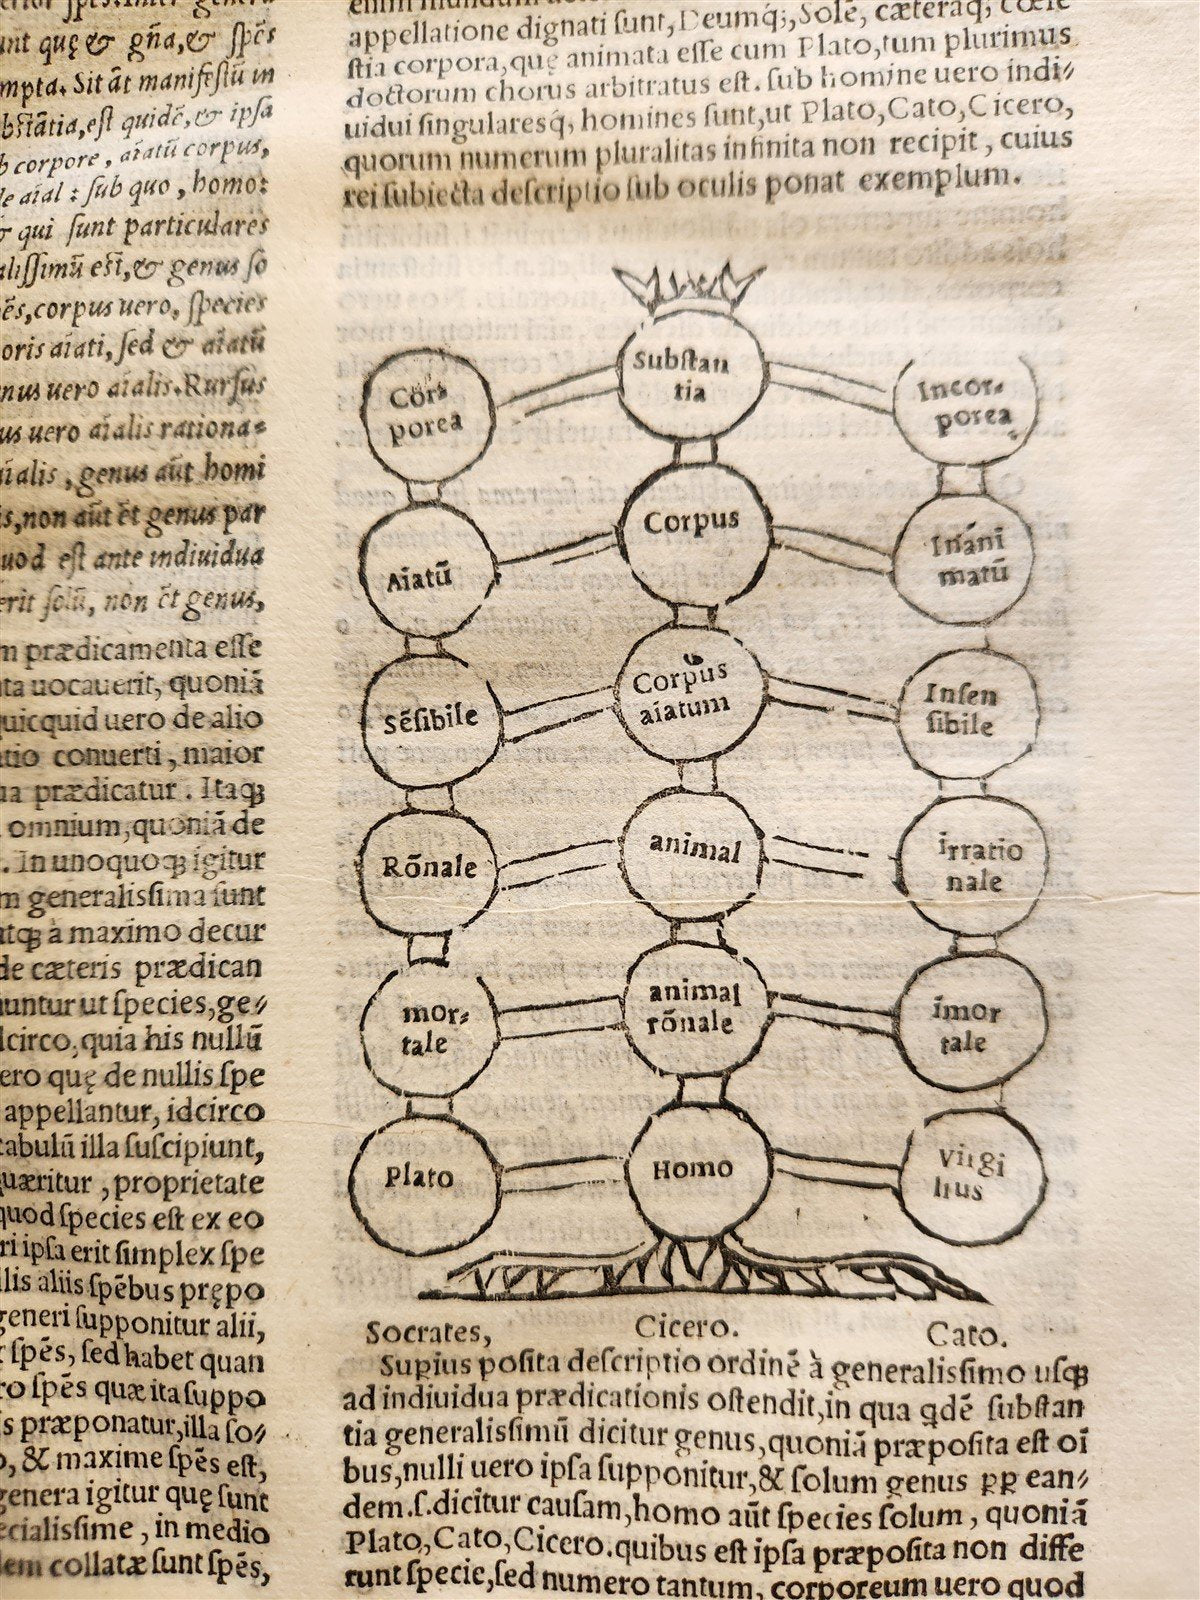 unt quę & gña, & spēs
mpta. Sit āt manifestū in
bstātia, est quidē, & ipsa
corpore, aīatū corpus,
aīal : sub quo, homo:
& qui sunt particulares
alissimū est, & genus so
ēs, corpus uero, species
oris aīati, sed & aīatū
nus uero aīalis. Rursus
us uero aīalis rationa-
aīalis, genus aūt homi
is, non aūt ēt genus par
uod est ante indiuidua
erit solū, non ēt genus,
m prædicamenta esse
ta uocauerit, quoniā
quicquid uero de alio
tio conuerti, maior
ua prædicatur. Itaqꝫ
omnium, quoniā de
. In unoquoqꝫ igitur
m generalissima sunt
tqꝫ à maximo decur
de cæteris prædican
nuntur ut species, ge-
dcirco, quia his nullū
ero quę de nullis spe
appellantur, idcirco
cabulū illa suscipiunt,
uæritur, proprietate
quod species est ex eo
ri ipsa erit simplex spe
llis aliis spēbus prępo
generi supponitur alii,
spēs, sed habet quan
ro spēs quæ ita suppo
s præponatur, illa so-
o, & maxime spēs est,
genera igitur quę sunt
ecialissime, in medio
dem collatæ sunt spēs,
appellatione dignati sunt, Deumq́;, Solē, cæteraq; cœle
stia corpora, quę animata esse cum Plato, tum plurimus
doctorum chorus arbitratus est. sub homine uero indi-
uidui singularesq́; homines sunt, ut Plato, Cato, Cicero,
quorum numerum pluralitas infinita non recipit, cuius
rei subiecta descriptio sub oculis ponat exemplum.
Cor-
porea
Substan
tia
Incor-
porea
Aīatū
Corpus
Inani
matū
Sēsibile
Corpus
aīatum
Insen
sibile
Rōnale
animal
irratio
nale
mor-
tale
animal
rōnale
īmor
tale
Plato
Homo
Virgi
lius
Socrates,
Cicero.
Cato.
Supius posita descriptio ordinē à generalissimo usqꝫ
ad indiuidua prædicationis ostendit, in qua qdē substan
tia generalissimū dicitur genus, quoniā præposita est oī
bus, nulli uero ipsa supponitur, & solum genus ꝓꝑ ean-
dem .s. dicitur causam, homo aūt species solum, quoniā
Plato, Cato, Cicero. quibus est ipsa præposita non diffe
runt specie, sed numero tantum, corporeum uero quod